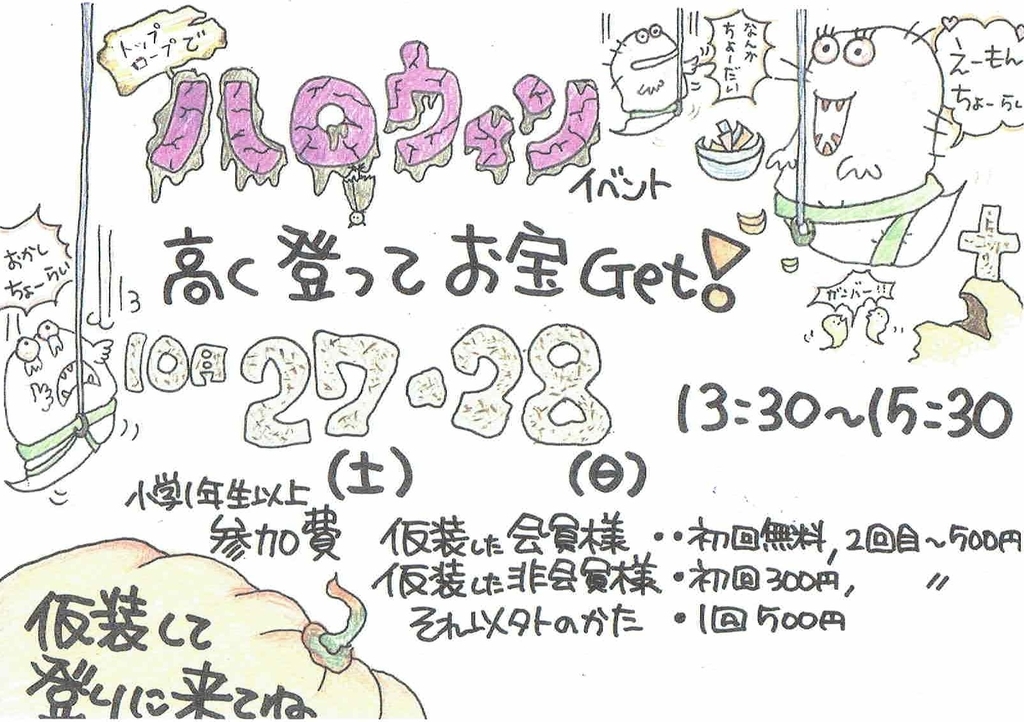 トップ
ロープで
ハロウィン
イベント
なんか
ちょーだい
えーもん
ちょーらい
高く登ってお宝Get!
おかし
ちょーらい
ガンバー!!
10月27・28
13:30〜15:30
(土) (日)
小学1年生以上
参加費 仮装した会員様・・初回無料,2回目〜500円
仮装した非会員様・初回300円, 〃
それ以外のかた・1回500円
仮装して
登りに来てね